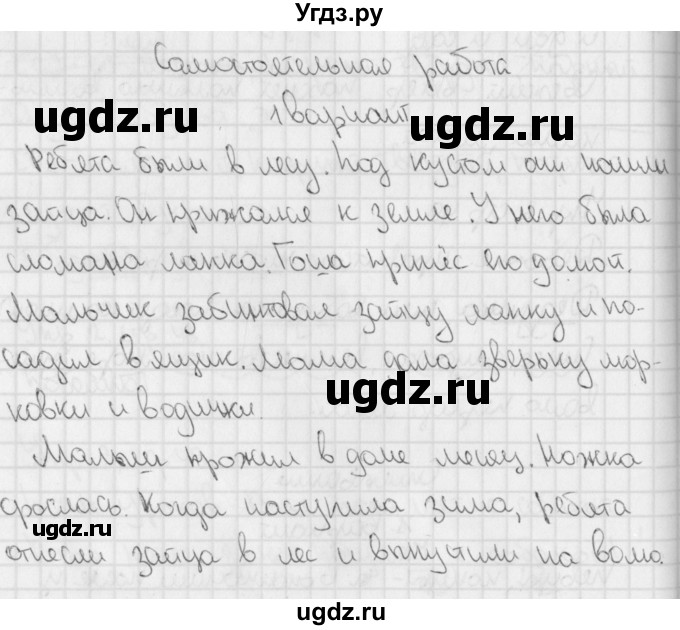 Угдз.ру
Самостоятельная работа
ugdz.ru
ugdz.ru
1 вариант
Ребята были в лесу. Под кустом они нашли
зайца. Он прижался к земле. У него была
сломана лапка. Гоша принёс его домой.
Мальчик забинтовал зайцу лапку и по-
садил в ящик. Мама дала зверьку мор-
ugdz.ru
ковки и водички.
Малыш прожил в доме месяц. Ножка
срослась. Когда наступила зима, ребята
ugdz.ru
отнесли зайца в лес и выпустили на волю.
ugdz.ru